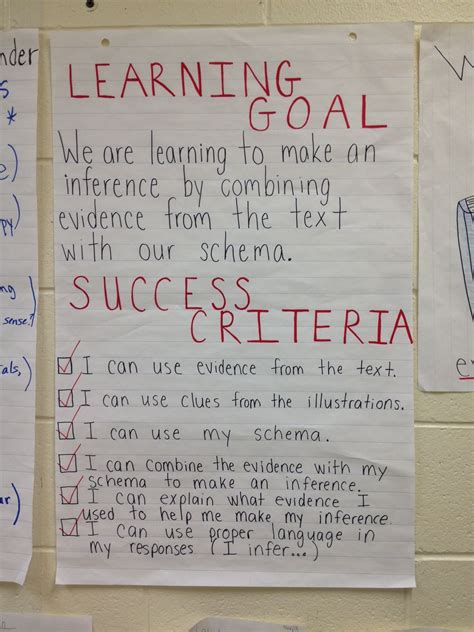 LEARNING
GOAL
We are learning to make an
inference by combining
evidence from the text
with our schema.
SUCCESS
CRITERIA
I can use evidence from the text.
I can use clues from the illustrations.
I can use my schema.
I can combine the evidence with my
schema to make an inference.
I can explain what evidence I
used to help me make my inference.
I can use proper language in
my responses (I infer...)
nder
s
*
e)
py
ng
sense?
als,)
ar)
W
e